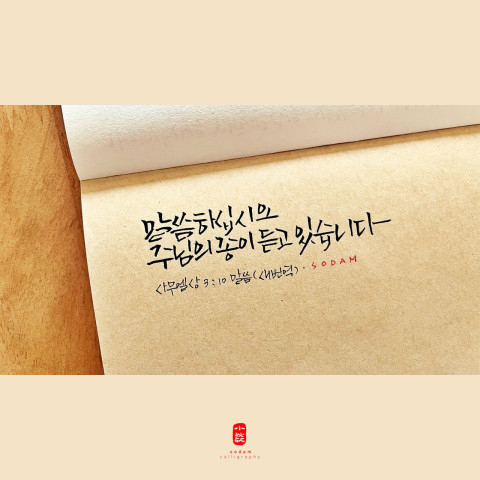 말씀하십시오
주님의 종이 듣고 있습니다
사무엘상 3:10 말씀(새번역)·SODAM
sodam
calligraphy